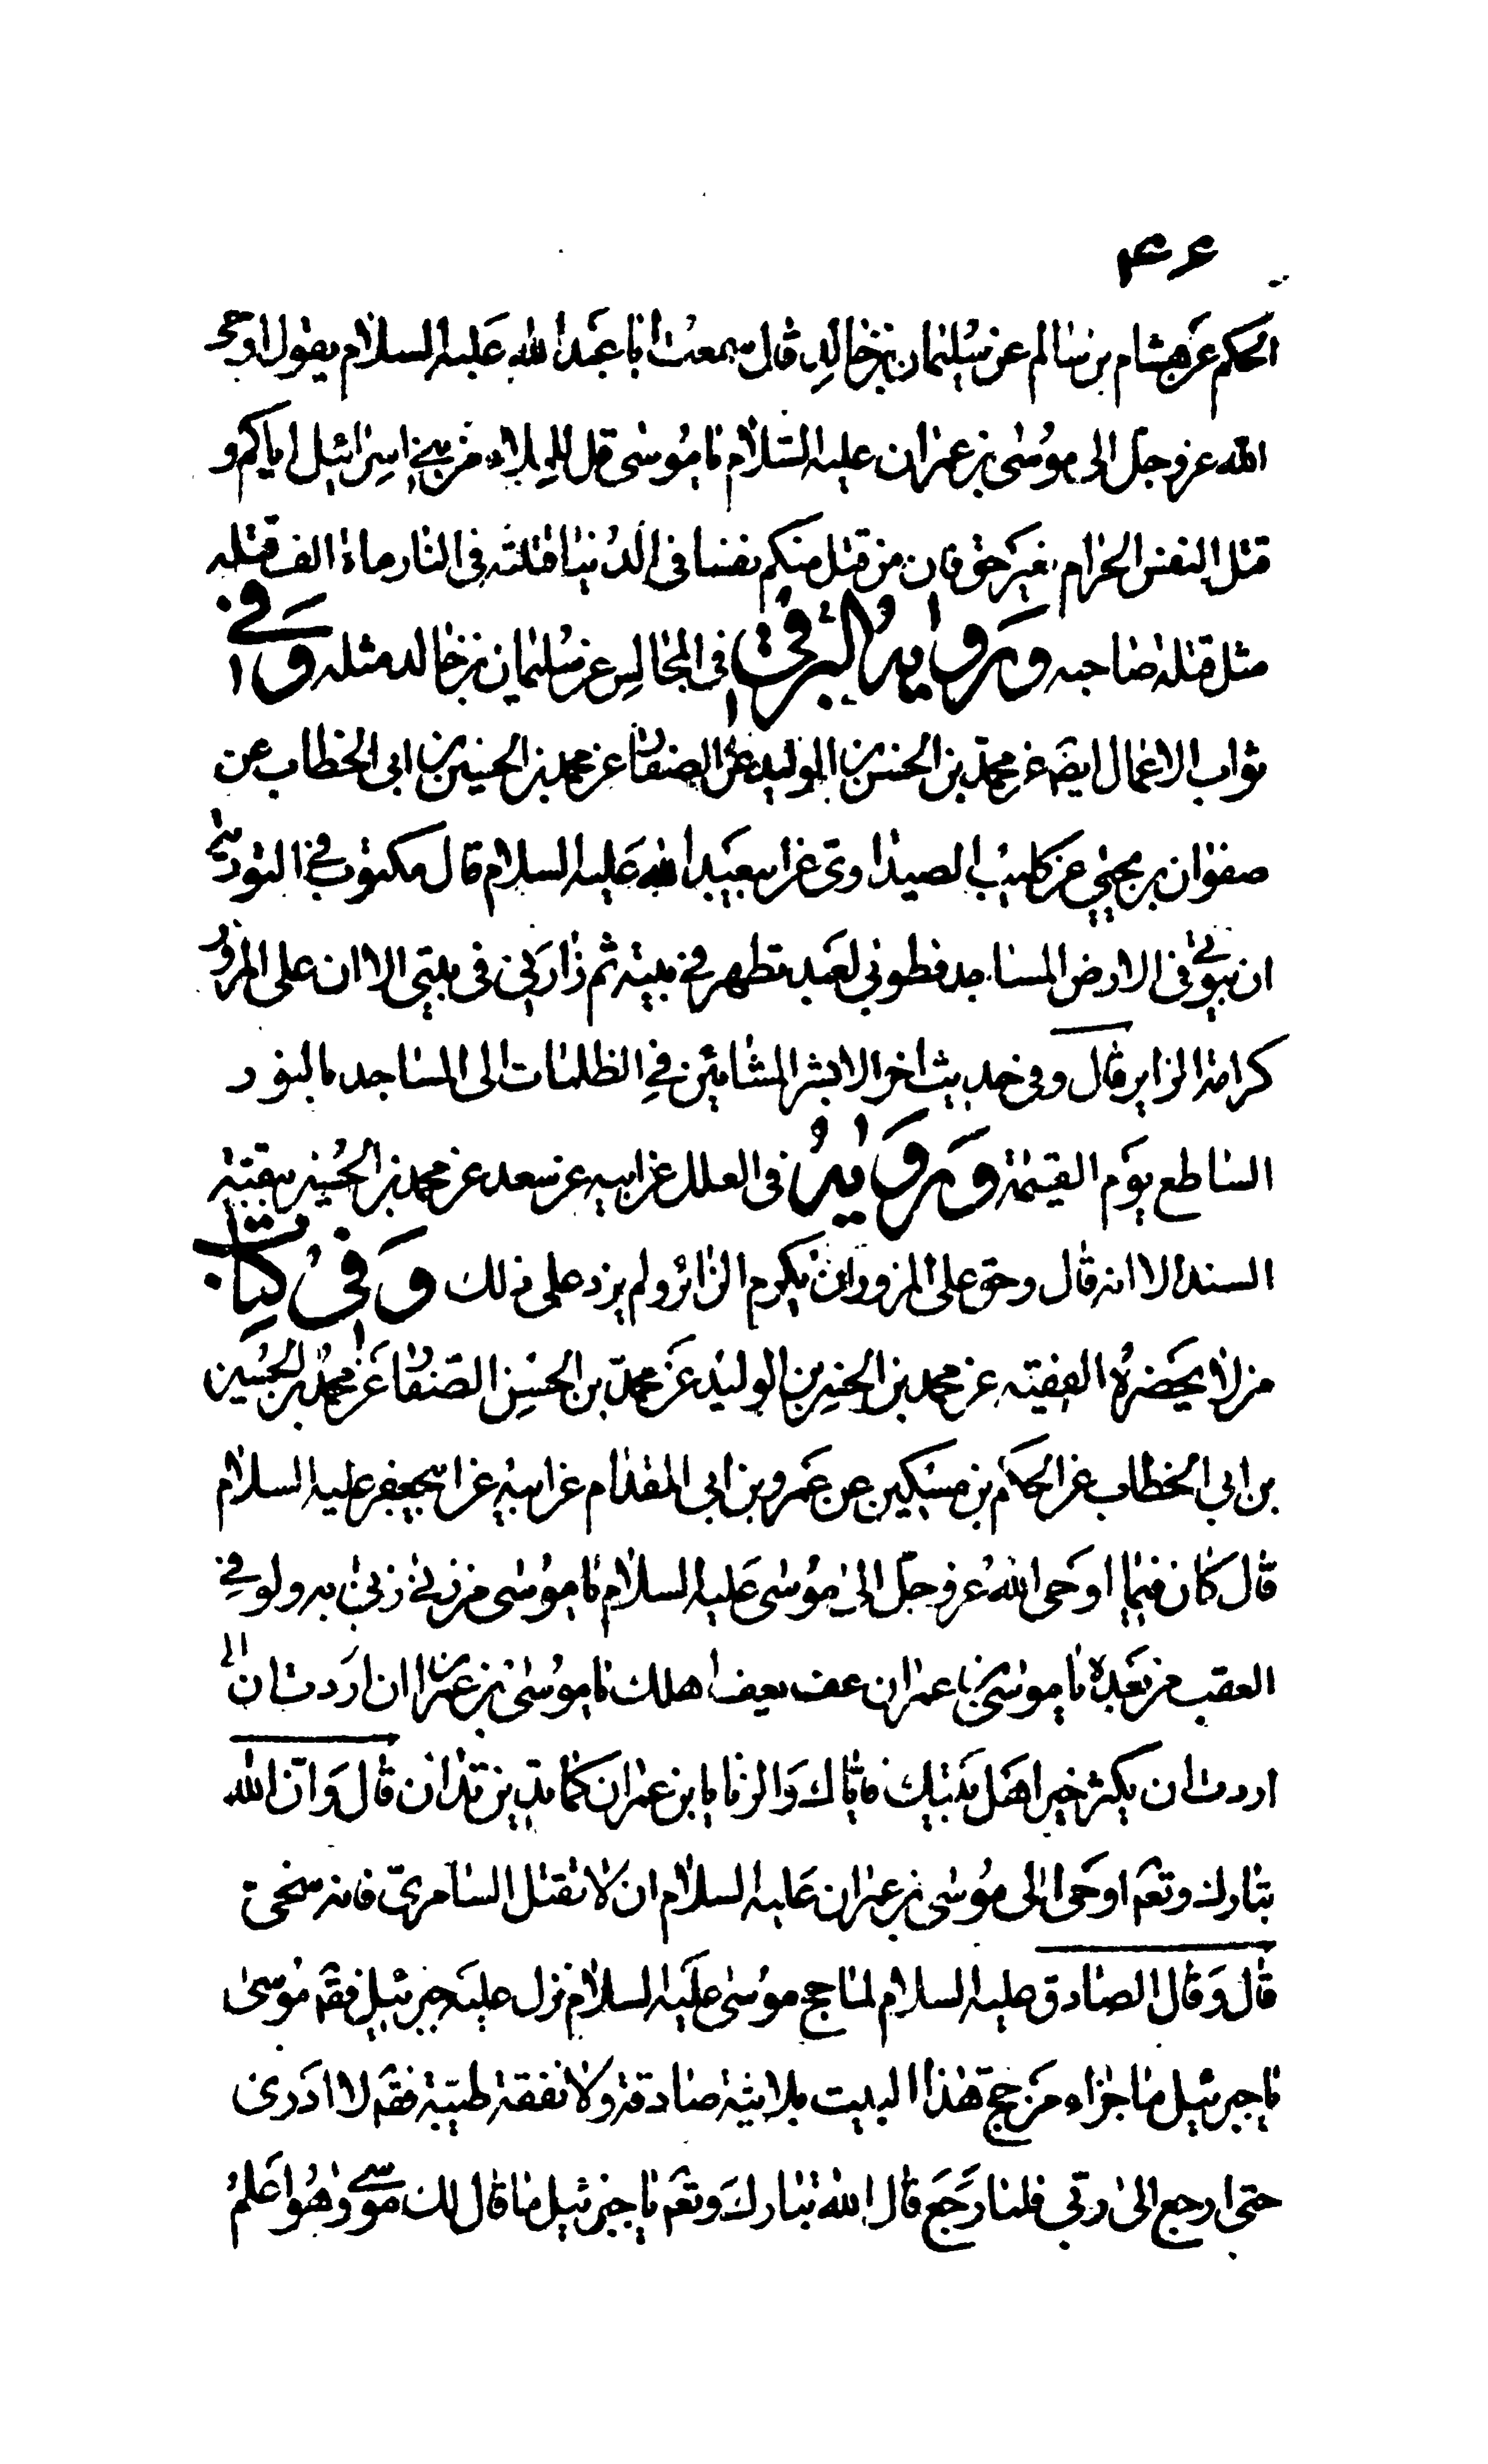 ۴۶
الحكم عن هشام بن سالم عن سليمان بن خالد قال سمعت ابا عبد الله عليه السلام يقول اوحى
الله عز وجل الى موسى بن عمران عليه السلام يا موسى قل للملاء من بنى اسرائيل اياكم و
قتل النفس الحرام بغير حق فان من قتل منكم نفسا فى الدنيا قتلته فى النار ماة الف قتلة
مثل قتلة صاحبه ورواه البرقى فى المجالس عن سليمان بن خالد مثله وفى
ثواب الاعمال ايضم عن محمد بن الحسن بن الوليد عن الصفار عن محمد بن الحسين بن ابى الخطاب عن
صفوان بن يحيى عن كليب الصيداوى عن ابيعبد الله عليه السلام قال مكتوب فى التورية
ان بيوتى فى الارض المساجد فطوبى لعبد تطهر فى بيته ثم زارنى فى بيتى الا ان على المزور
كرامة الزاير قال وفى حديث اخر الا بشر المشائين فى الظلمات الى المساجد بالنور
الساطع يوم القيمة ورواه فى العلل عن ابيه عن سعد عن محمد بن الحسين ببقية
السند الا انه قال وحق على المزور ان يكرم الزائر ولم يزد على ذلك وفى كتاب
من لا يحضره الفقيه عن محمد بن الحسن بن الوليد عن محمد بن الحسن الصفار عن محمد بن الحسين
بن ابى الخطاب عن الحكم بن مسكين عن عمرو بن ابى المقدام عن ابيه عن ابيجعفر عليه السلام
قال كان فيما اوحى الله عز وجل الى موسى عليه السلام يا موسى من زنى زنى به ولو فى
العقب من بعده يا موسى بن عمران عف يعف اهلك يا موسى بن عمران ان اردت ان
اردت ان يكثر خير اهل بيتك فاياك والزنا يا بن عمران كما تدين تدان قال وان الله
تبارك وتعم اوحى الى موسى بن عمران عليه السلام ان لا تقتل السامرى فانه سخى
قال وقال الصادق عليه السلام لما حج موسى عليه السلام نزل عليه جبرئيل فقم موسى
يا جبرئيل ما جزاء من حج هذا البيت بلا نية صادقة ولا نفقة طيبة فقم لا ادرى
حتى ارجع الى ربى فلما رجع قال الله تبارك وتعم يا جبرئيل ما قال لك موسى وهو اعلم